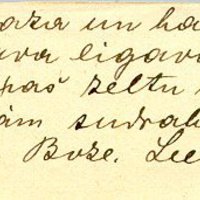 aza un ha
ava ligav
paš zeltu
ām sudrab
Bože. Lee